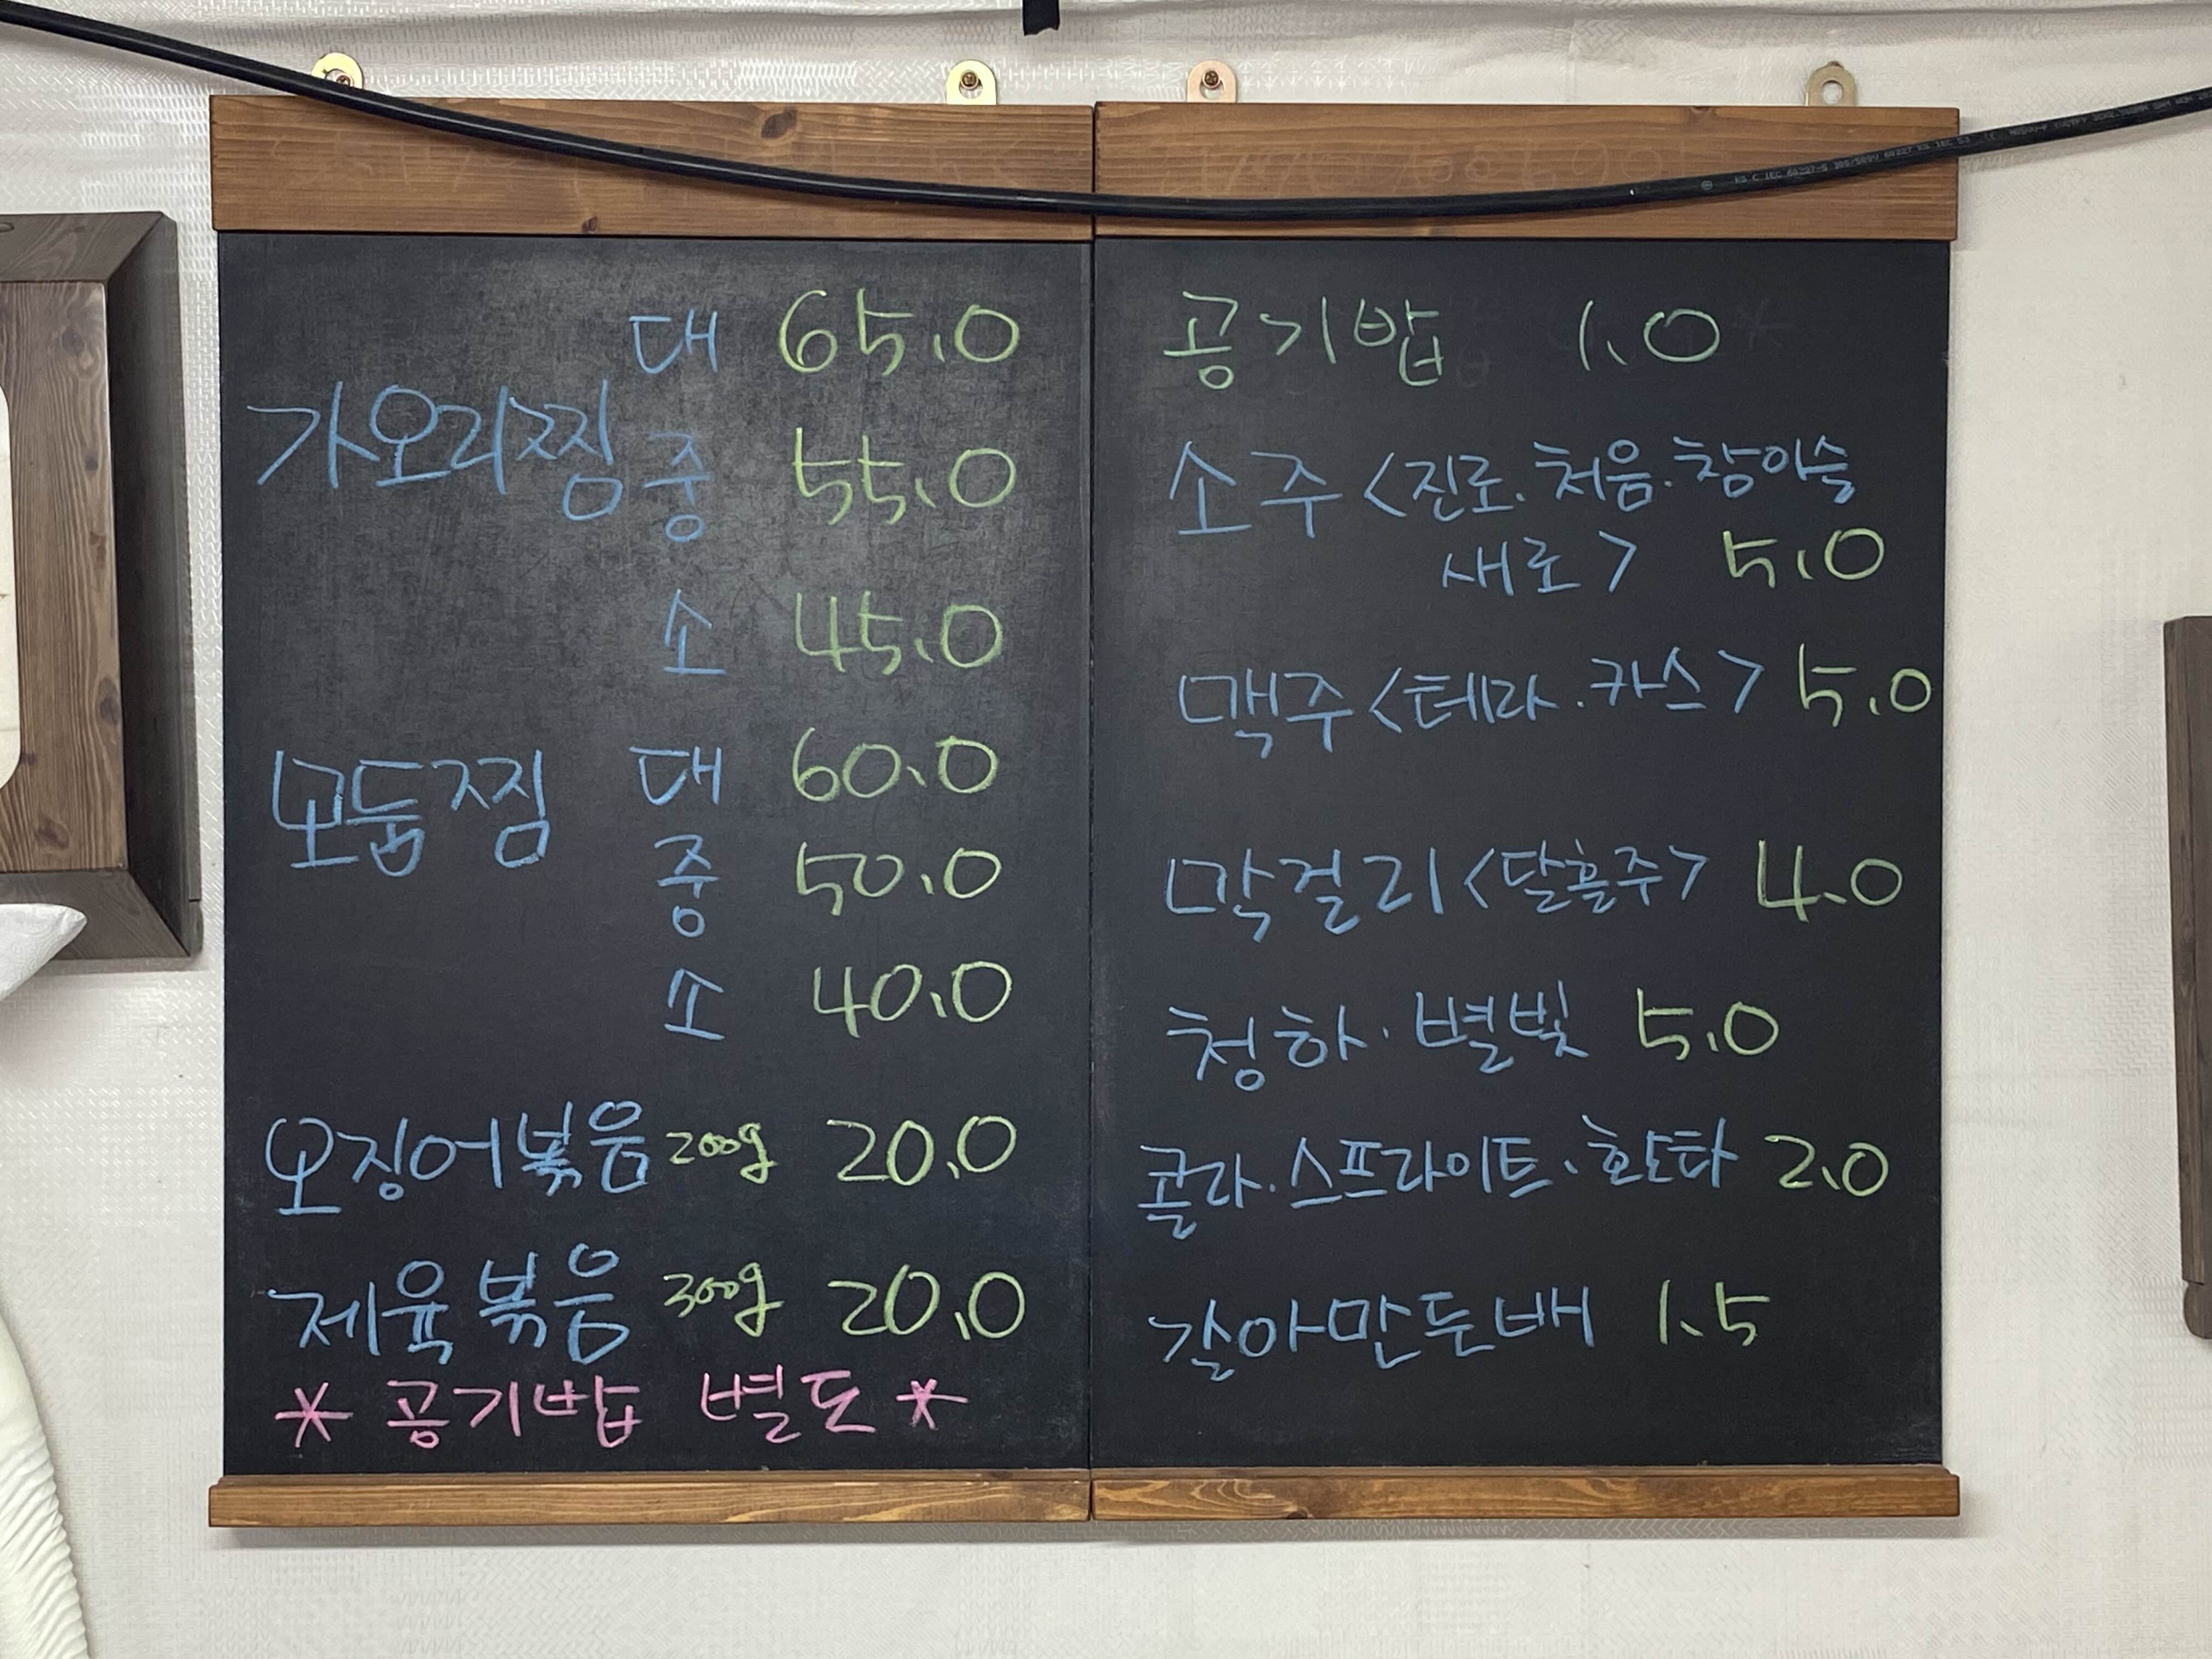 대 65.0
가오리찜 중 55.0
소 45.0
모둠찜 대 60.0
중 50.0
소 40.0
오징어볶음 200g 20.0
제육볶음 300g 20.0
* 공기밥 별도 *
공기밥 1.0
소주 <진로. 처음. 참이슬
새로> 5.0
맥주 <테라. 카스> 5.0
막걸리 <달홀주> 4.0
청하. 별빛 5.0
콜라. 스프라이트. 환타 2.0
갈아만든배 1.5